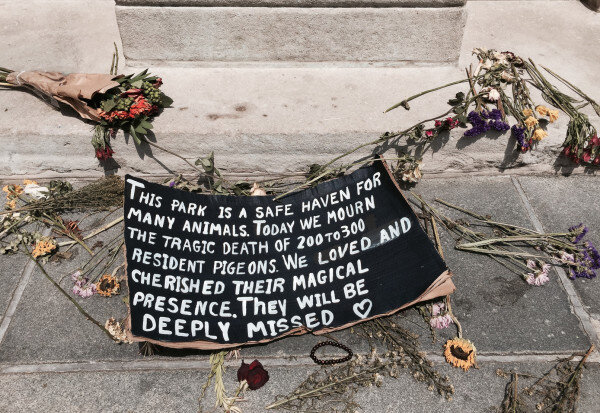 THIS PARK IS A SAFE HAVEN FOR
MANY ANIMALS. TODAY WE MOURN
THE TRAGIC DEATH OF 200 TO 300
RESIDENT PIGEONS. WE LOVED AND
CHERISHED THEIR MAGICAL
PRESENCE. THEY WILL BE
DEEPLY MISSED ♡